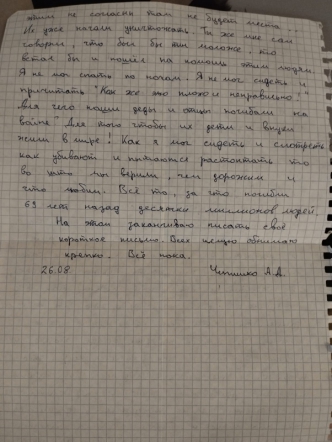 этим не согласны там не будет места.
Их уже начали уничтожать. Ты же мне сам
говорил, что был бы ты моложе, то
встал бы и пошёл на помощь этим людям.
Я не мог спать по ночам. Я не мог сидеть и
причитать "Как же это плохо и неправильно,"
для чего наши деды и отцы погибали на
войне" Для того чтобы их дети и внуки
жили в мире! Как я мог сидеть и смотреть
как убивают и пытаются растоптать то
во что мы верили, чем дорожим и
что любим. Всё то, за что погибли
69 лет назад десятки миллионов людей.
На этом заканчиваю писать своё
короткое письмо. Всех целую обнимаю
крепко. Всё пока.
26.08 А.А.